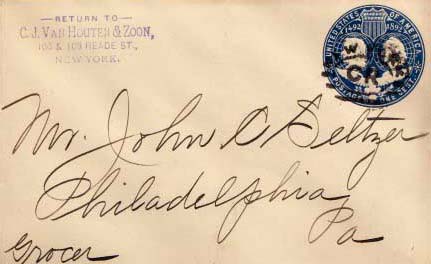 RETURN TO
C. J. VAN HOUTEN & ZOON,
106 & 108 READE ST.,
NEW YORK.
UNITED STATES OF AMERICA
1492 1892
POSTAGE ONE CENT
Mr. John C Seltzer
Philadelphia
Pa
Grocer